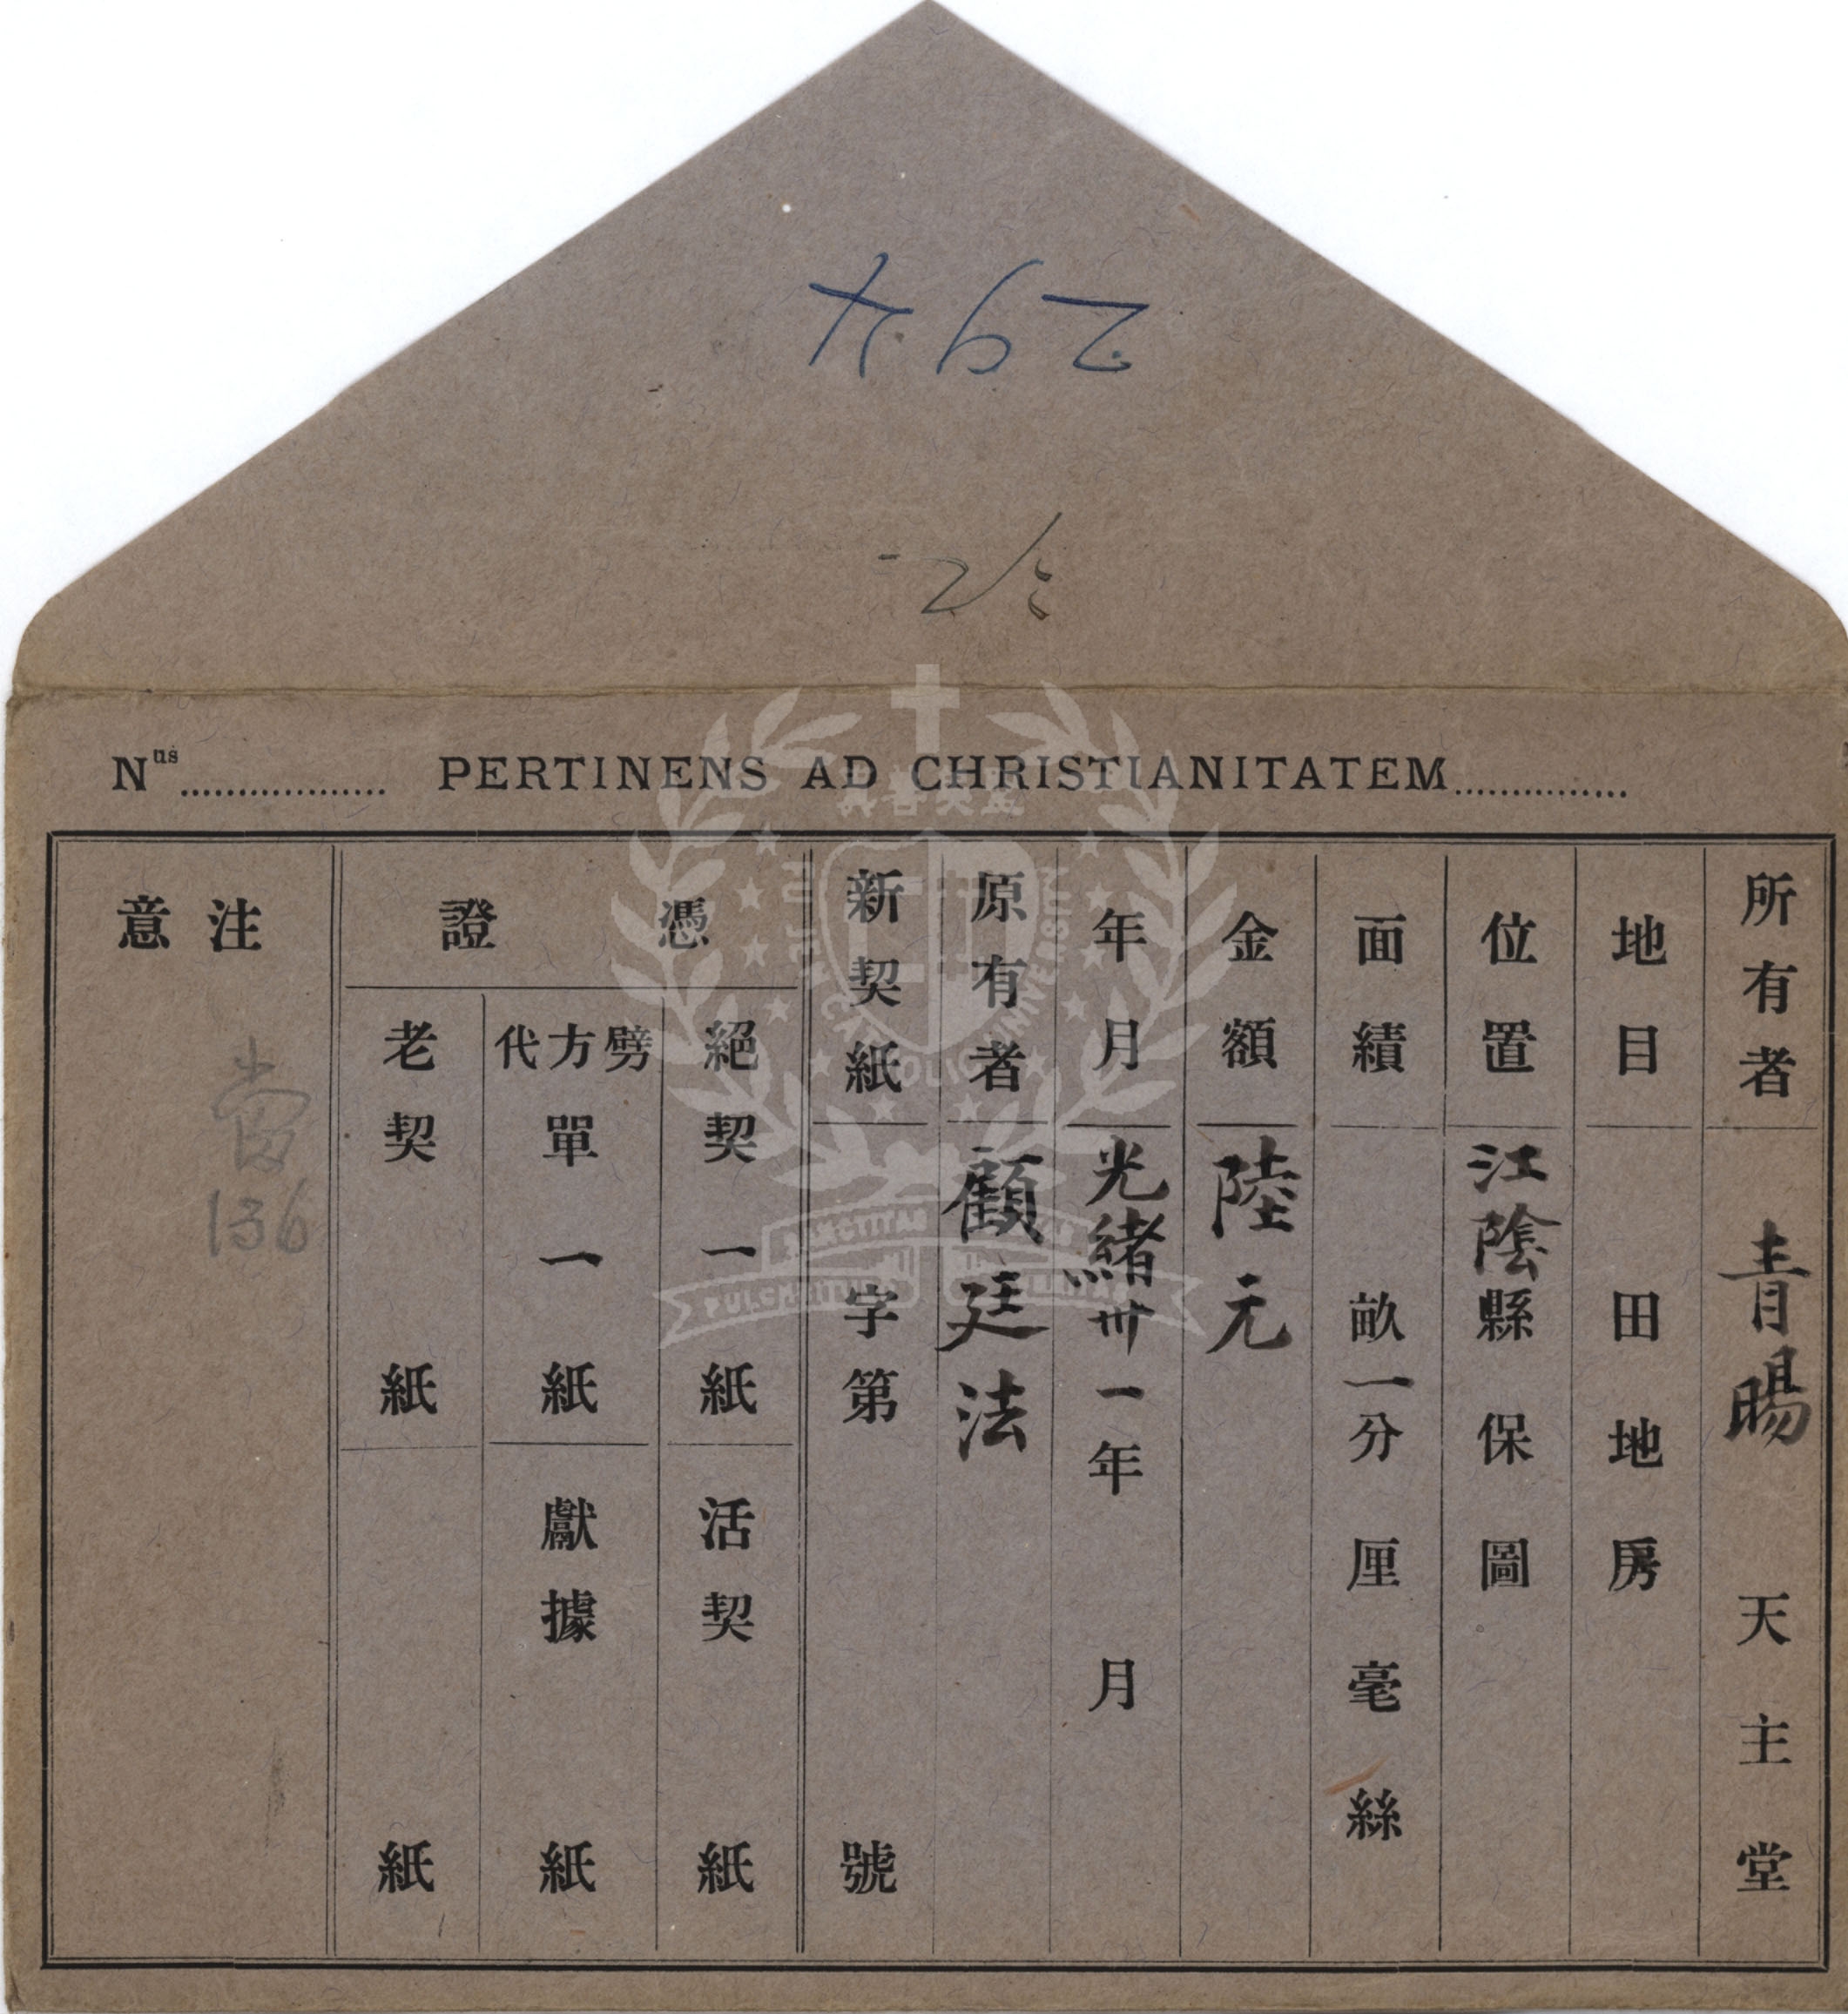 294
Nus.................. PERTINENS AD CHRISTIANITATEM...............
所有者 青暘 天主堂
地目 田地房
位置 江陰縣保圖
面績 畝一分厘毫絲
金額 陸元
年月 光緒卅一年 月
原有者 顧廷法
新契紙 字第 號
憑證
絕契一紙 活契 紙
劈方代單一紙 獻據 紙
老契 紙 紙
注意
136
真善美聖